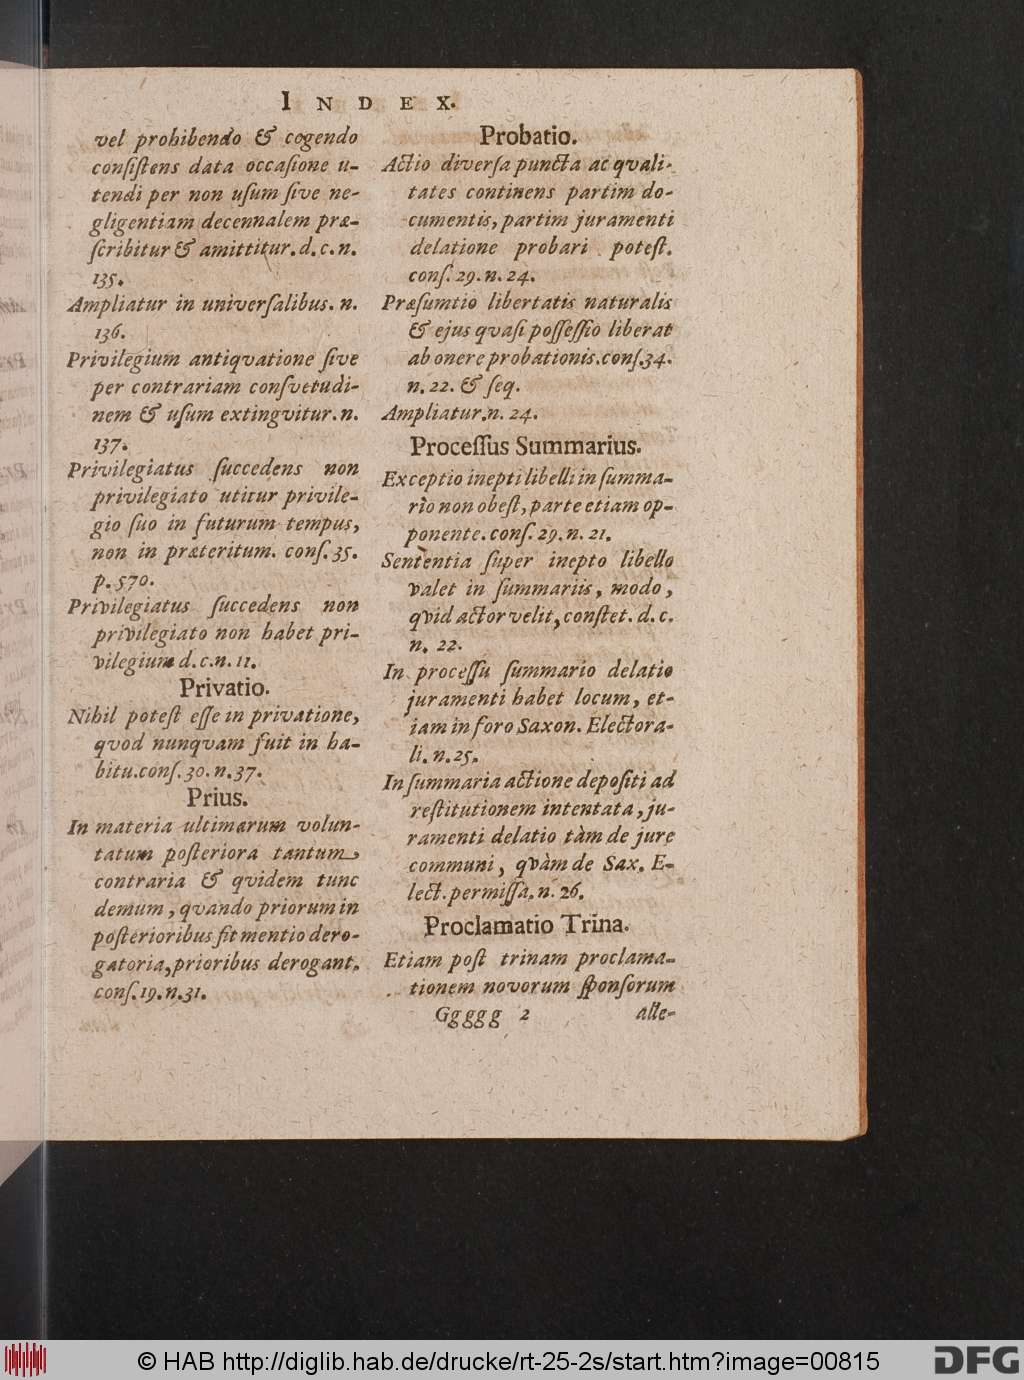 INDEX.
vel prohibendo & cogendo
conſiſtens data occaſione u-
tendi per non uſum ſive ne-
gligentiam decennalem præ-
ſcribitur & amittitur. d. c. n.
135.
Ampliatur in univerſalibus. n.
136.
Privilegium antiqvatione ſive
per contrariam conſvetudi-
nem & uſum extingvitur. n.
137.
Privilegiatus ſuccedens non
privilegiato utitur privile-
gio ſuo in futurum tempus,
non in præteritum. conſ. 35.
p. 570.
Privilegiatus ſuccedens non
privilegiato non habet pri-
vilegium d. c. n. 11.
Privatio.
Nihil poteſt eſſe in privatione,
qvod nunqvam fuit in ha-
bitu. conſ. 30. n. 37.
Prius.
In materia ultimarum volun-
tatum poſteriora tantum
contraria & qvidem tunc
demum, qvando priorum in
poſterioribus fit mentio dero-
gatoria, prioribus derogant.
conſ. 19. n. 31.
Probatio.
Actio diverſa puncta ac qvali-
tates continens partim do-
cumentis, partim juramenti
delatione probari poteſt.
conſ. 29. n. 24.
Præſumtio libertatis naturalis
& ejus qvaſi poſſeſſio liberat
ab onere probationis. conſ. 34.
n. 22. & ſeq.
Ampliatur. n. 24.
Proceſſus Summarius.
Exceptio inepti libelli in ſumma-
rio non obeſt, parte etiam op-
ponente. conſ. 29. n. 21.
Sententia ſuper inepto libello
valet in ſummariis, modo,
qvid actor velit, conſtet. d. c.
n. 22.
In proceſſu ſummario delatio
juramenti habet locum, et-
iam in foro Saxon. Electora-
li. n. 25.
In ſummaria actione depoſiti ad
reſtitutionem intentata, ju-
ramenti delatio tàm de jure
communi, qvàm de Sax. E-
lect. permiſſa. n. 26.
Proclamatio Trina.
Etiam poſt trinam proclama-
tionem novorum ſponſorum
Ggggg 2 alle-
© HAB http://diglib.hab.de/drucke/rt-25-2s/start.htm?image=00815
DFG